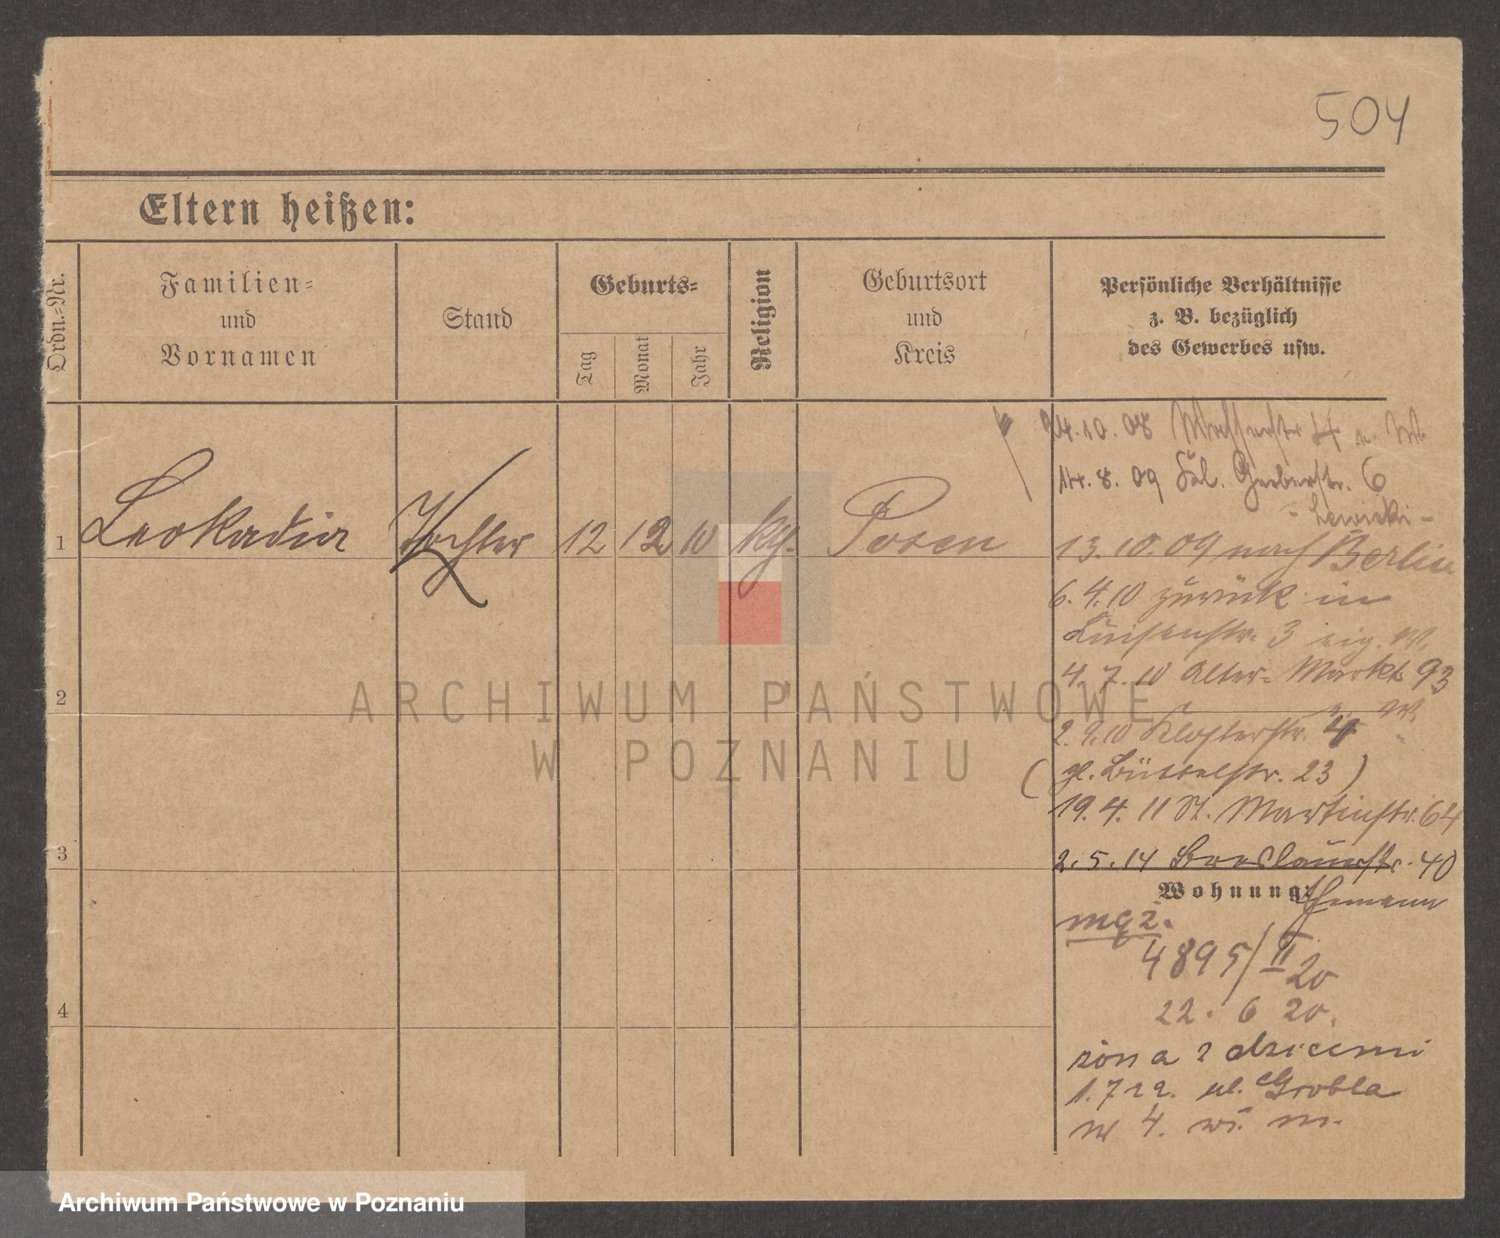 504
Eltern heißen:
Ordn.-Nr.
Familien-
und
Vornamen
Stand
Geburts-
Tag
Monat
Jahr
Religion
Geburtsort
und
Kreis
Persönliche Verhältnisse
z. B. bezüglich
des Gewerbes usw.
24.10.08
14.8.09 Gerberstr. 6
1 Leokadia Tochter 12 12 10 kg. Posen
13.10.09 nach Berlin
6.4.10 zurück in
Luisenstr. 3 eig. W.
4.7.10 Alter-Markt 93
2
2.9.10 Klosterstr. 4
(gl. Büttelstr. 23)
19.4.11 St. Martinstr. 64
3
2.5.14 Breslauerstr. 40
Wohnung:
4895/II 20
22. 6 20.
4
żona z dziećmi
1.7 22. ul. Grobla
4. m.
ARCHIWUM PAŃSTWOWE
W POZNANIU
Archiwum Państwowe w Poznaniu